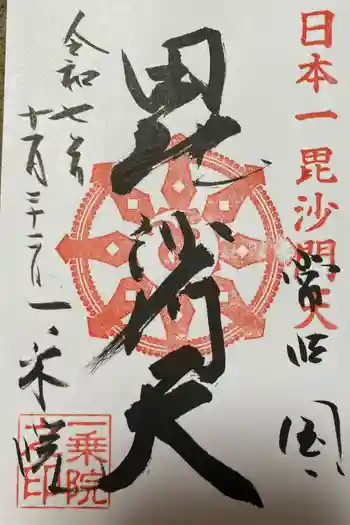 日本一毘沙門天
常陸国
毘沙門天
令和七年
十月三十一日
一乗院
一乗院
之印